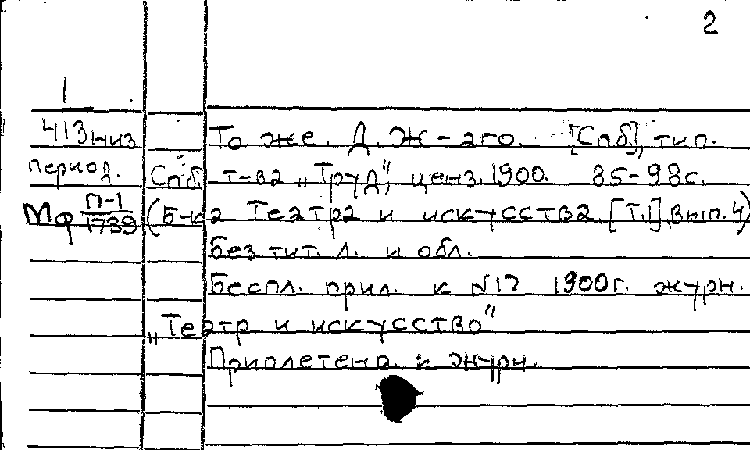 2
1
413 низ То же. Д. Ж-аго. [Спб], тип.
период. Спб т-ва „Труд", ценз. 1900. 85-98 с.
Мф П-1/1739 (Б-ка Театра и искусства. [Т.1], вып. 4)
Без тит. л. и обл.
Беспл. прил. к №17 1900г. журн.
„Театр и искусство"
Приплетена к журн.